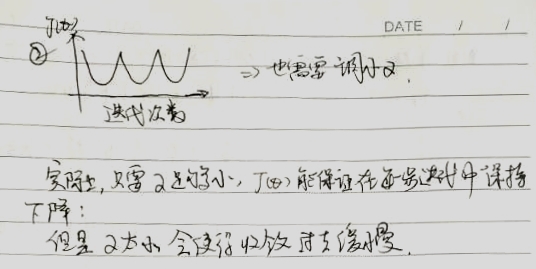 DATE / /
J(θ)
② ⇒ 也需要调小α.
迭代次数
实际上,只要α足够小,J(θ)能保证在每步迭代中保持
下降;
但是α太小会使得收敛过于缓慢.